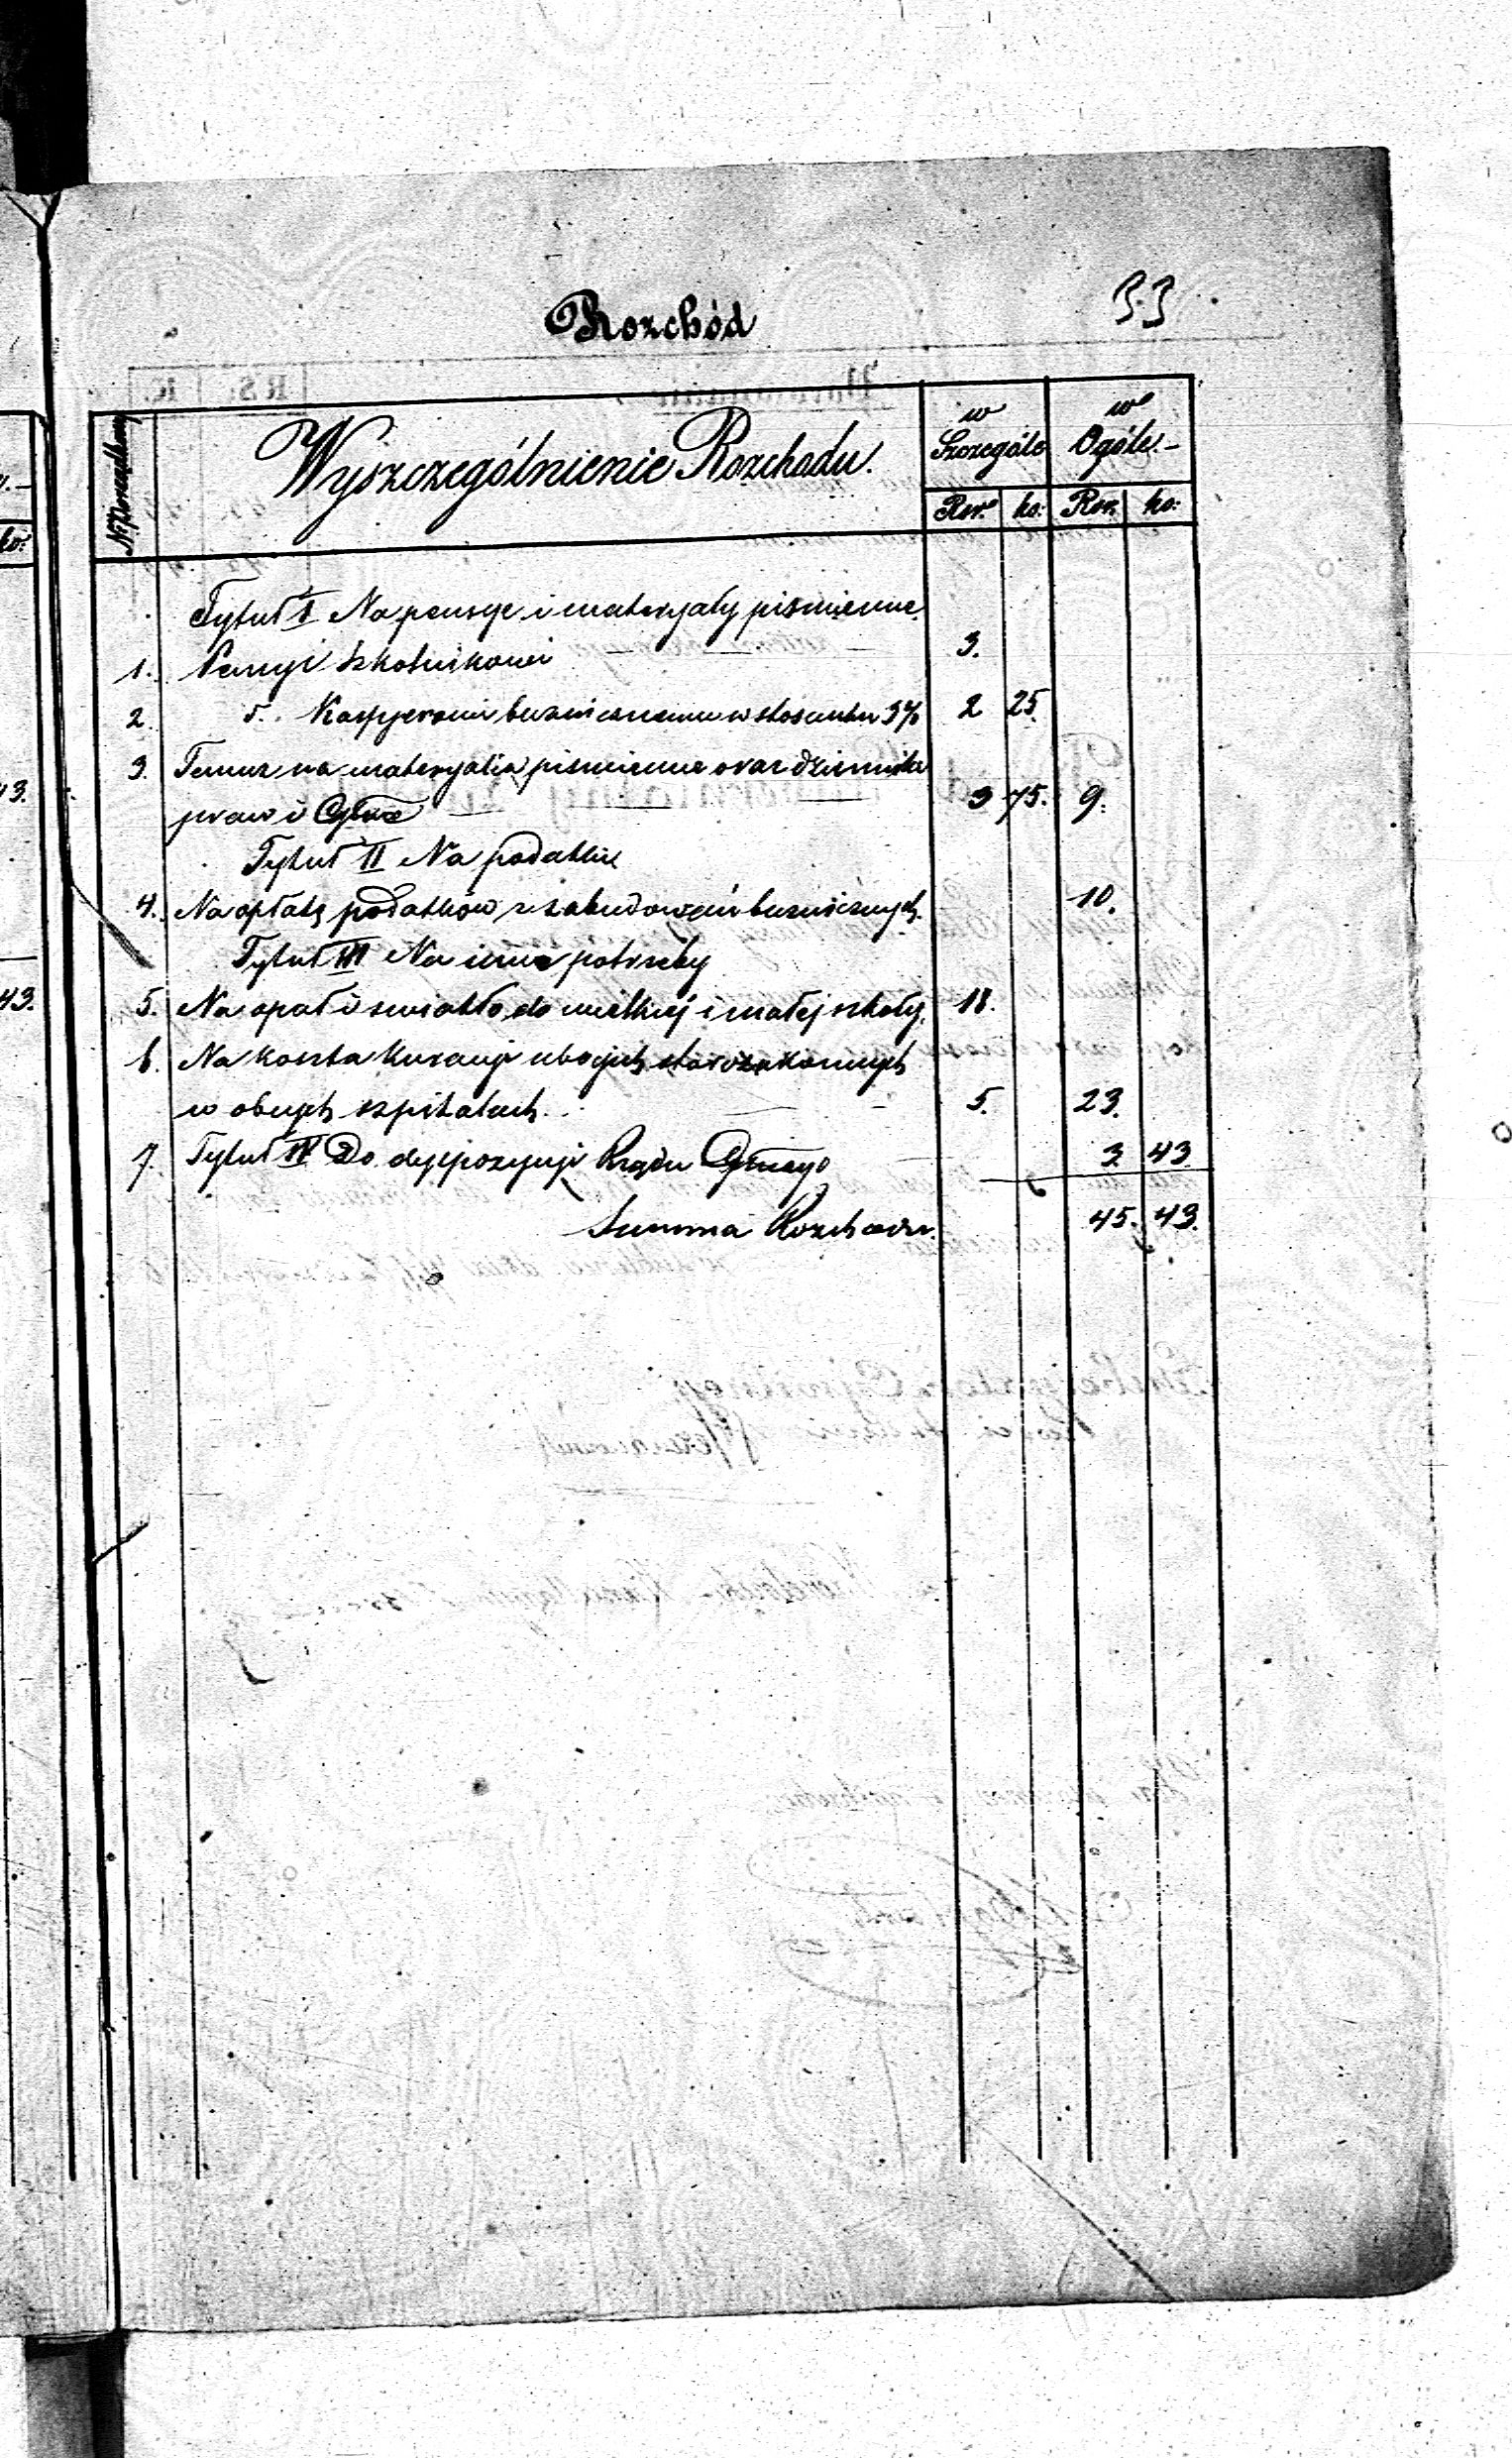 33
Rozchód
Nr Porządkowy
Wyszczególnienie Rozchodu.
w Szczególe
w Ogóle.-
Rsr. ko: Rsr. ko:
Tytuł I Na pensye i materyały piśmienne
1. Pensyi Szkolnikowi 3.
2. d.. Kassyerowi bużnicznemu w stosunku 5% 2 25.
3. Temuż na materyalia piśmienne oraz dziennika
praw i 3 75. 9.
Tytuł II Na podatki
4. Na opłatę podatków z zabudowań bużnicznych. 10.
Tytuł III Na inne potrzeby
5. Na opał i światło do wielkiej i małej szkoły. 18.
6. Na koszta kuracyi ubogich starozakonnych
w obcych szpitalach. 5. 23.
7. Tytuł IV Do dyspozycyi Rządu 3 43
Summa Rozchodu. 45. 43.
43.
43.
ko: